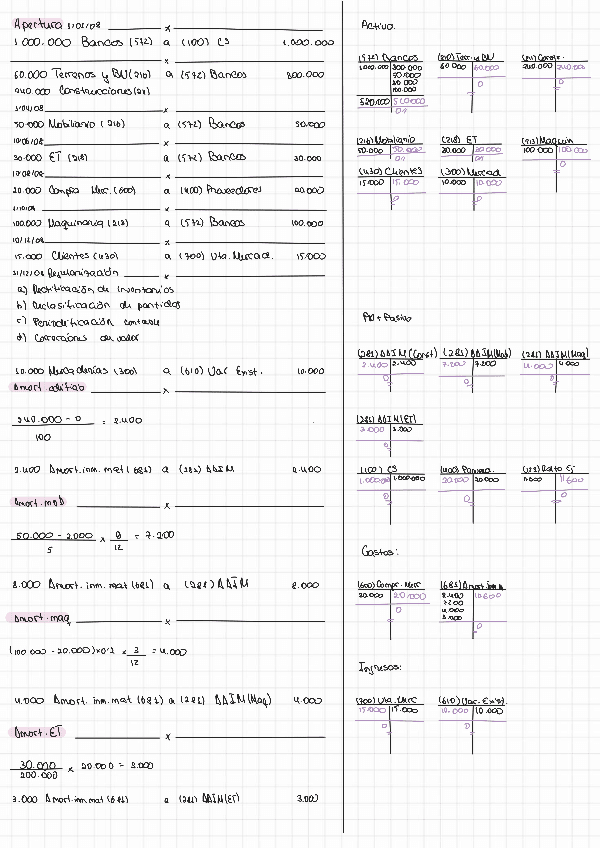 Apertura 1/01/08
1.000.000 Bancos (572) a (100) CS 1.000.000
x
60.000 Terrenos y BN (210) a (572) Bancos 300.000
240.000 Construcciones (211)
x
50.000 Mobiliario (216) a (572) Bancos 50.000
x
30.000 ET (218) a (572) Bancos 30.000
x
20.000 Compra Merc. (600) a (400) Proveedores 20.000
1/10/08 x
100.000 Maquinaria (213) a (572) Bancos 100.000
10/12/08 x
15.000 Clientes (430) a (700) Vta. Mercad. 15.000
31/12/08 Regularización x
a) Rectificación de inventarios
b) Reclasificación de partidas
c) Periodificación contable
d) Correcciones de valor
10.000 Mercaderías (300) a (610) Var Exist. 10.000
Amort. edificio x
240.000 - 0 = 2.400
100
2.400 Amort. inm. mat (681) a (281) AAIM 2.400
Amort. mob x
50.000 - 2.000 x 9 = 7.200
5 12
Amort. inm. mat (681) a (281) AAIM
Amort. maq x
(100.000 - 20.000) x 0'2 x 3 = 4.000
12
4.000 Amort. inm. mat (681) a (281) AAIM (Maq) 4.000
Amort. ET x
30.000 x 20.000 = 3.000
200.000
3.000 Amort. inm. mat (681) a (281) AAIM (ET) 3.000
Activo:
(572) Bancos (210) Terr. y BN (211) Constr.
1.000.000 300.000 60.000 60.000 240.000 240.000
50.000 0 0
30.000
100.000
520.000 520.000
(216) Mobiliario (218) ET (213) Maquin
50.000 50.000 30.000 30.000 100.000 100.000
0
(430) Clientes (300) Mercad
15.000 15.000 10.000 10.000
0 0
PN + Pasivo
(281) AAIM (Const) (281) AAIM (Mob) (281) AAIM (Maq)
2.400 2.400 7.200 7.200 4.000 4.000
0 0 0
(281) AAIM (ET)
3.000 3.000
0
(100) CS (400) Proveed. (129) Rdto Ej
1.000.000 1.000.000 20.000 20.000
0 0 0
Gastos:
(600) Compr. Merc (681) Amort. inm
20.000 20.000 2.400
0 7.200
4.000
3.000
0
Ingresos:
(700) Vta. Merc (610) Var. Exist.
15.000 15.000 10.000 10.000
0 0